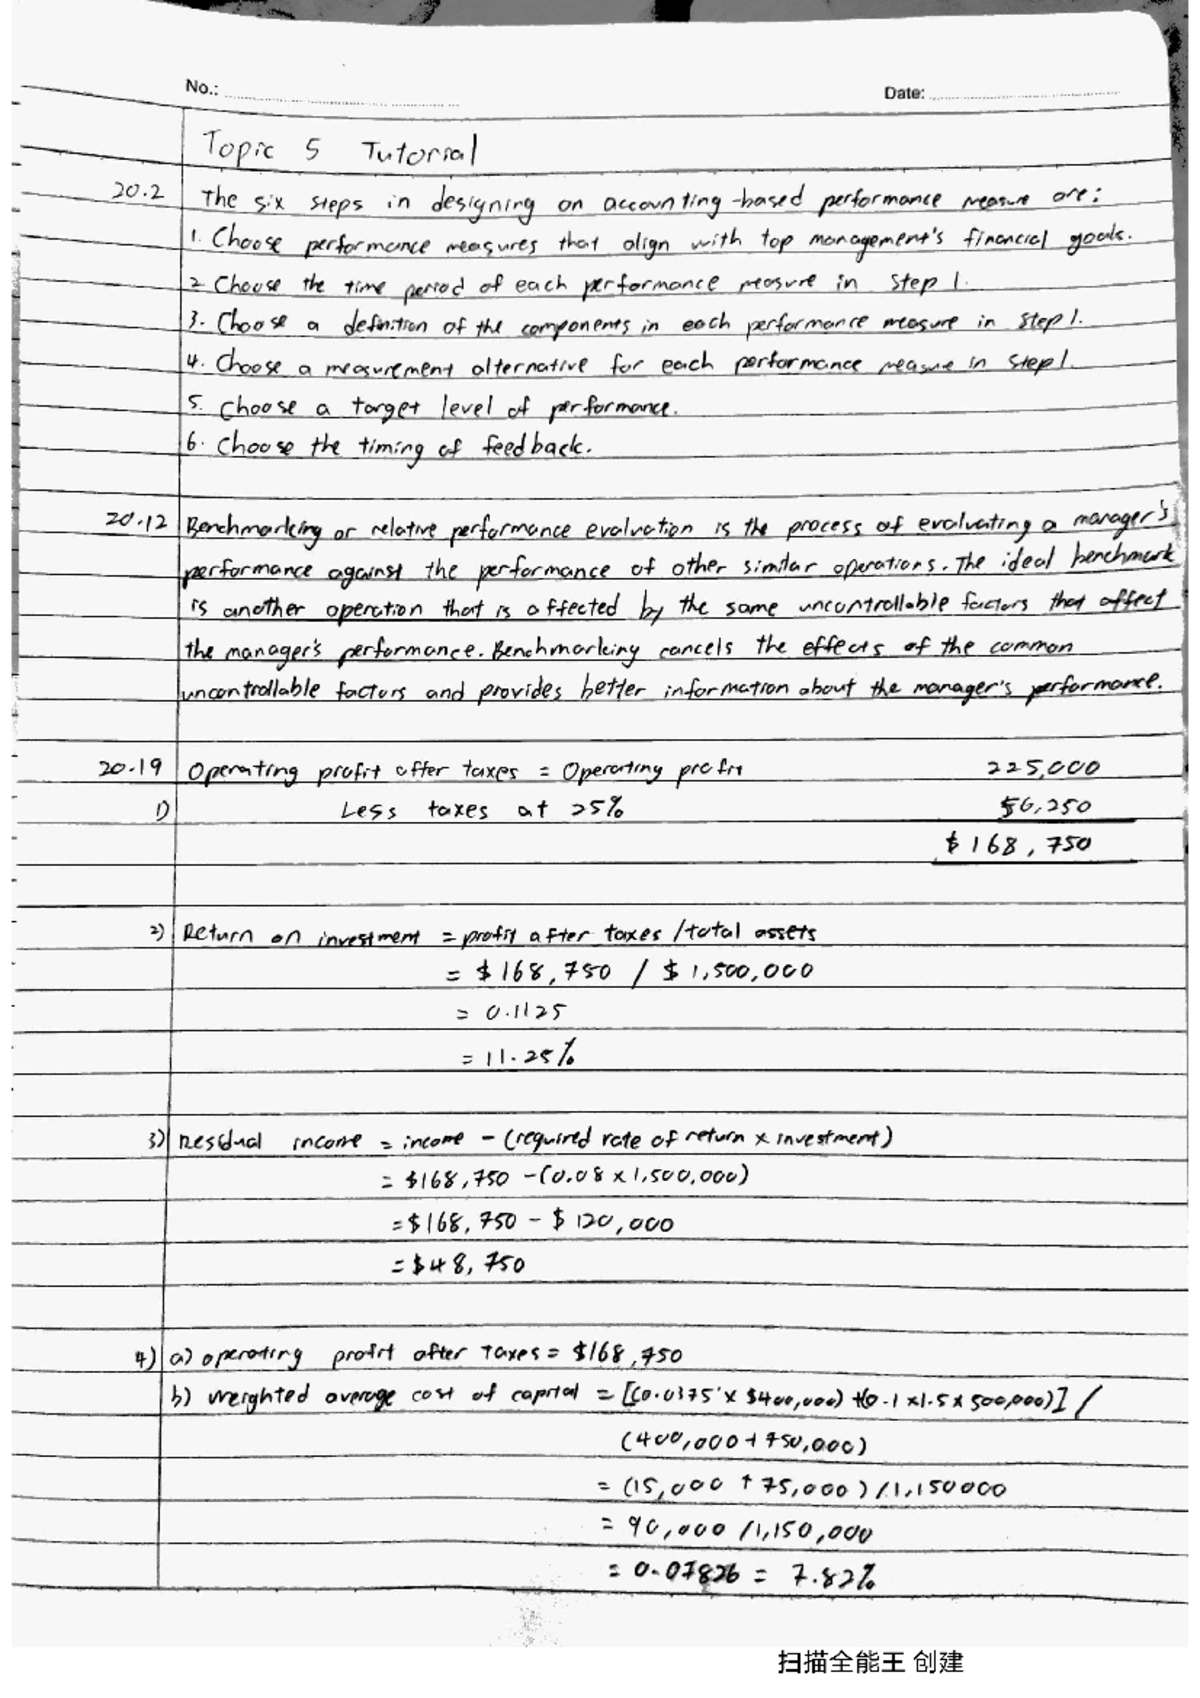 No.:
Date:
Topic 5 Tutorial
20.2 The six steps in designing an accounting-based performance measure are:
1. Choose performance measures that align with top management's financial goals.
2 Choose the time period of each performance measure in step 1.
3. Choose a definition of the components in each performance measure in step 1.
4. Choose a measurement alternative for each performance measure in step 1.
5. Choose a target level of performance.
6. Choose the timing of feedback.
20.12 Benchmarking or relative performance evaluation is the process of evaluating a manager's
performance against the performance of other similar operations. The ideal benchmark
is another operation that is affected by the same uncontrollable factors that affect
the manager's performance. Benchmarking cancels the effects of the common
uncontrollable factors and provides better information about the manager's performance.
20.19 Operating profit after taxes = Operating profit 225,000
1) Less taxes at 25% 56,250
$168,750
2) Return on investment = profit after taxes / total assets
= $168,750 / $1,500,000
= 0.1125
= 11.25%
3) Residual income = income - (required rate of return x investment)
= $168,750 - (0.08 x 1,500,000)
= $168,750 - $120,000
= $48,750
4) a) operating profit after taxes = $168,750
b) weighted average cost of capital = [(0.0375 x $400,000) + (0.1 x 1.5 x 500,000)] /
(400,000 + 750,000)
= (15,000 + 75,000) / 1,150000
= 90,000 / 1,150,000
= 0.07826 = 7.82%
扫描全能王 创建